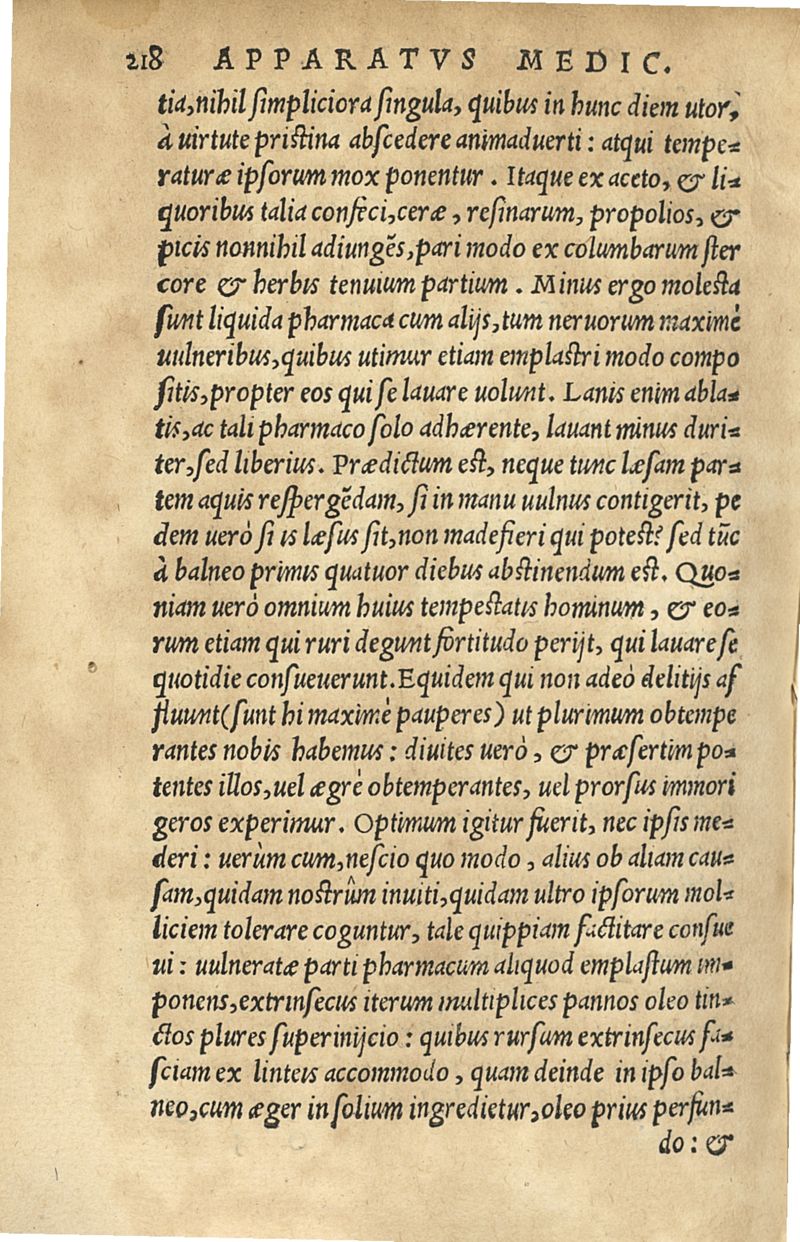 218 APPARATVS MEDIC.
tia, nihil simpliciora singula, quibus in hunc diem utor,
à uirtute pristina abscedere animaduerti: atqui tempe=
raturæ ipsorum mox ponentur. Itaque ex aceto, & li=
quoribus talia confeci, ceræ, resinarum, propolios, &
picis nonnihil adiungẽs, pari modo ex columbarum ster
core & herbis tenuium partium. Minus ergo molesta
sunt liquida pharmaca cum alijs, tum neruorum maximè
uulneribus, quibus utimur etiam emplastri modo compo
sitis, propter eos qui se lauare uolunt. Lanis enim abla=
tis, ac tali pharmaco solo adhærente, lauant minus duri=
ter, sed liberius. Prædictum est, neque tunc læsam par=
tem aquis respergẽdam, si in manu uulnus contigerit, pe
dem uerò si is læsus sit, non madefieri qui potest? sed tũc
à balneo primis quatuor diebus abstinendum est. Quo=
niam uerò omnium huius tempestatis hominum, & eo=
rum etiam qui ruri degunt fortitudo perijt, qui lauare se
quotidie consueuerunt. Equidem qui non adeò delitijs af
fluunt (sunt hi maximè pauperes) ut plurimum obtempe
rantes nobis habemus: diuites uerò, & præsertim po=
tentes illos, uel ægrè obtemperantes, uel prorsus immori
geros experimur. Optimum igitur fuerit, nec ipsis me=
deri: uerùm cum, nescio quo modo, alius ob aliam cau=
sam, quidam nostrûm inuiti, quidam ultro ipsorum mol=
liciem tolerare coguntur, tale quippiam factitare consue
ui: uulneratæ parti pharmacum aliquod emplastum im=
ponens, extrinsecus iterum multiplices pannos oleo tin=
ctos plures superinijcio: quibus rursum extrinsecus fa=
sciam ex linteis accommodo, quam deinde in ipso bal=
neo, cum æger in solium ingredietur, oleo prius perfun=
do: &